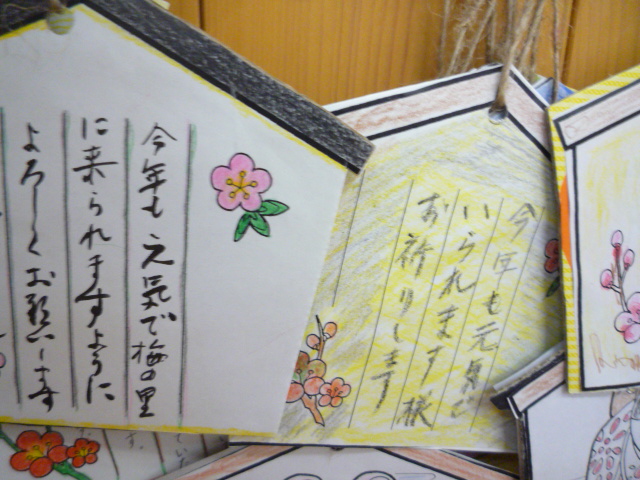 今年も元気で梅の里
に来られますように
よろしくお願いします
今年も元気で
いられます様
お祈りします